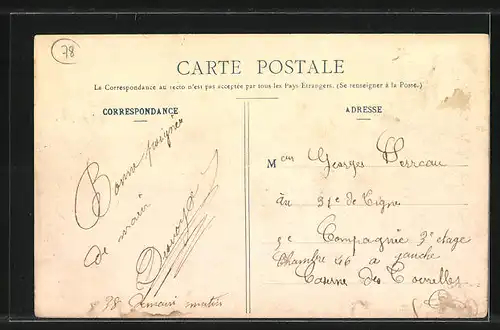 78
CARTE POSTALE
La Correspondance au recto n'est pas acceptée par tous les Pays Etrangers. (Se renseigner à la Poste.)
CORRESPONDANCE
ADRESSE
Bonne poignée
de main
demain matin
Meur Georges
au 31e de Ligne
3e Compagnie 3e étage
Chambre 46 a gauche
Caserne des Tourelles